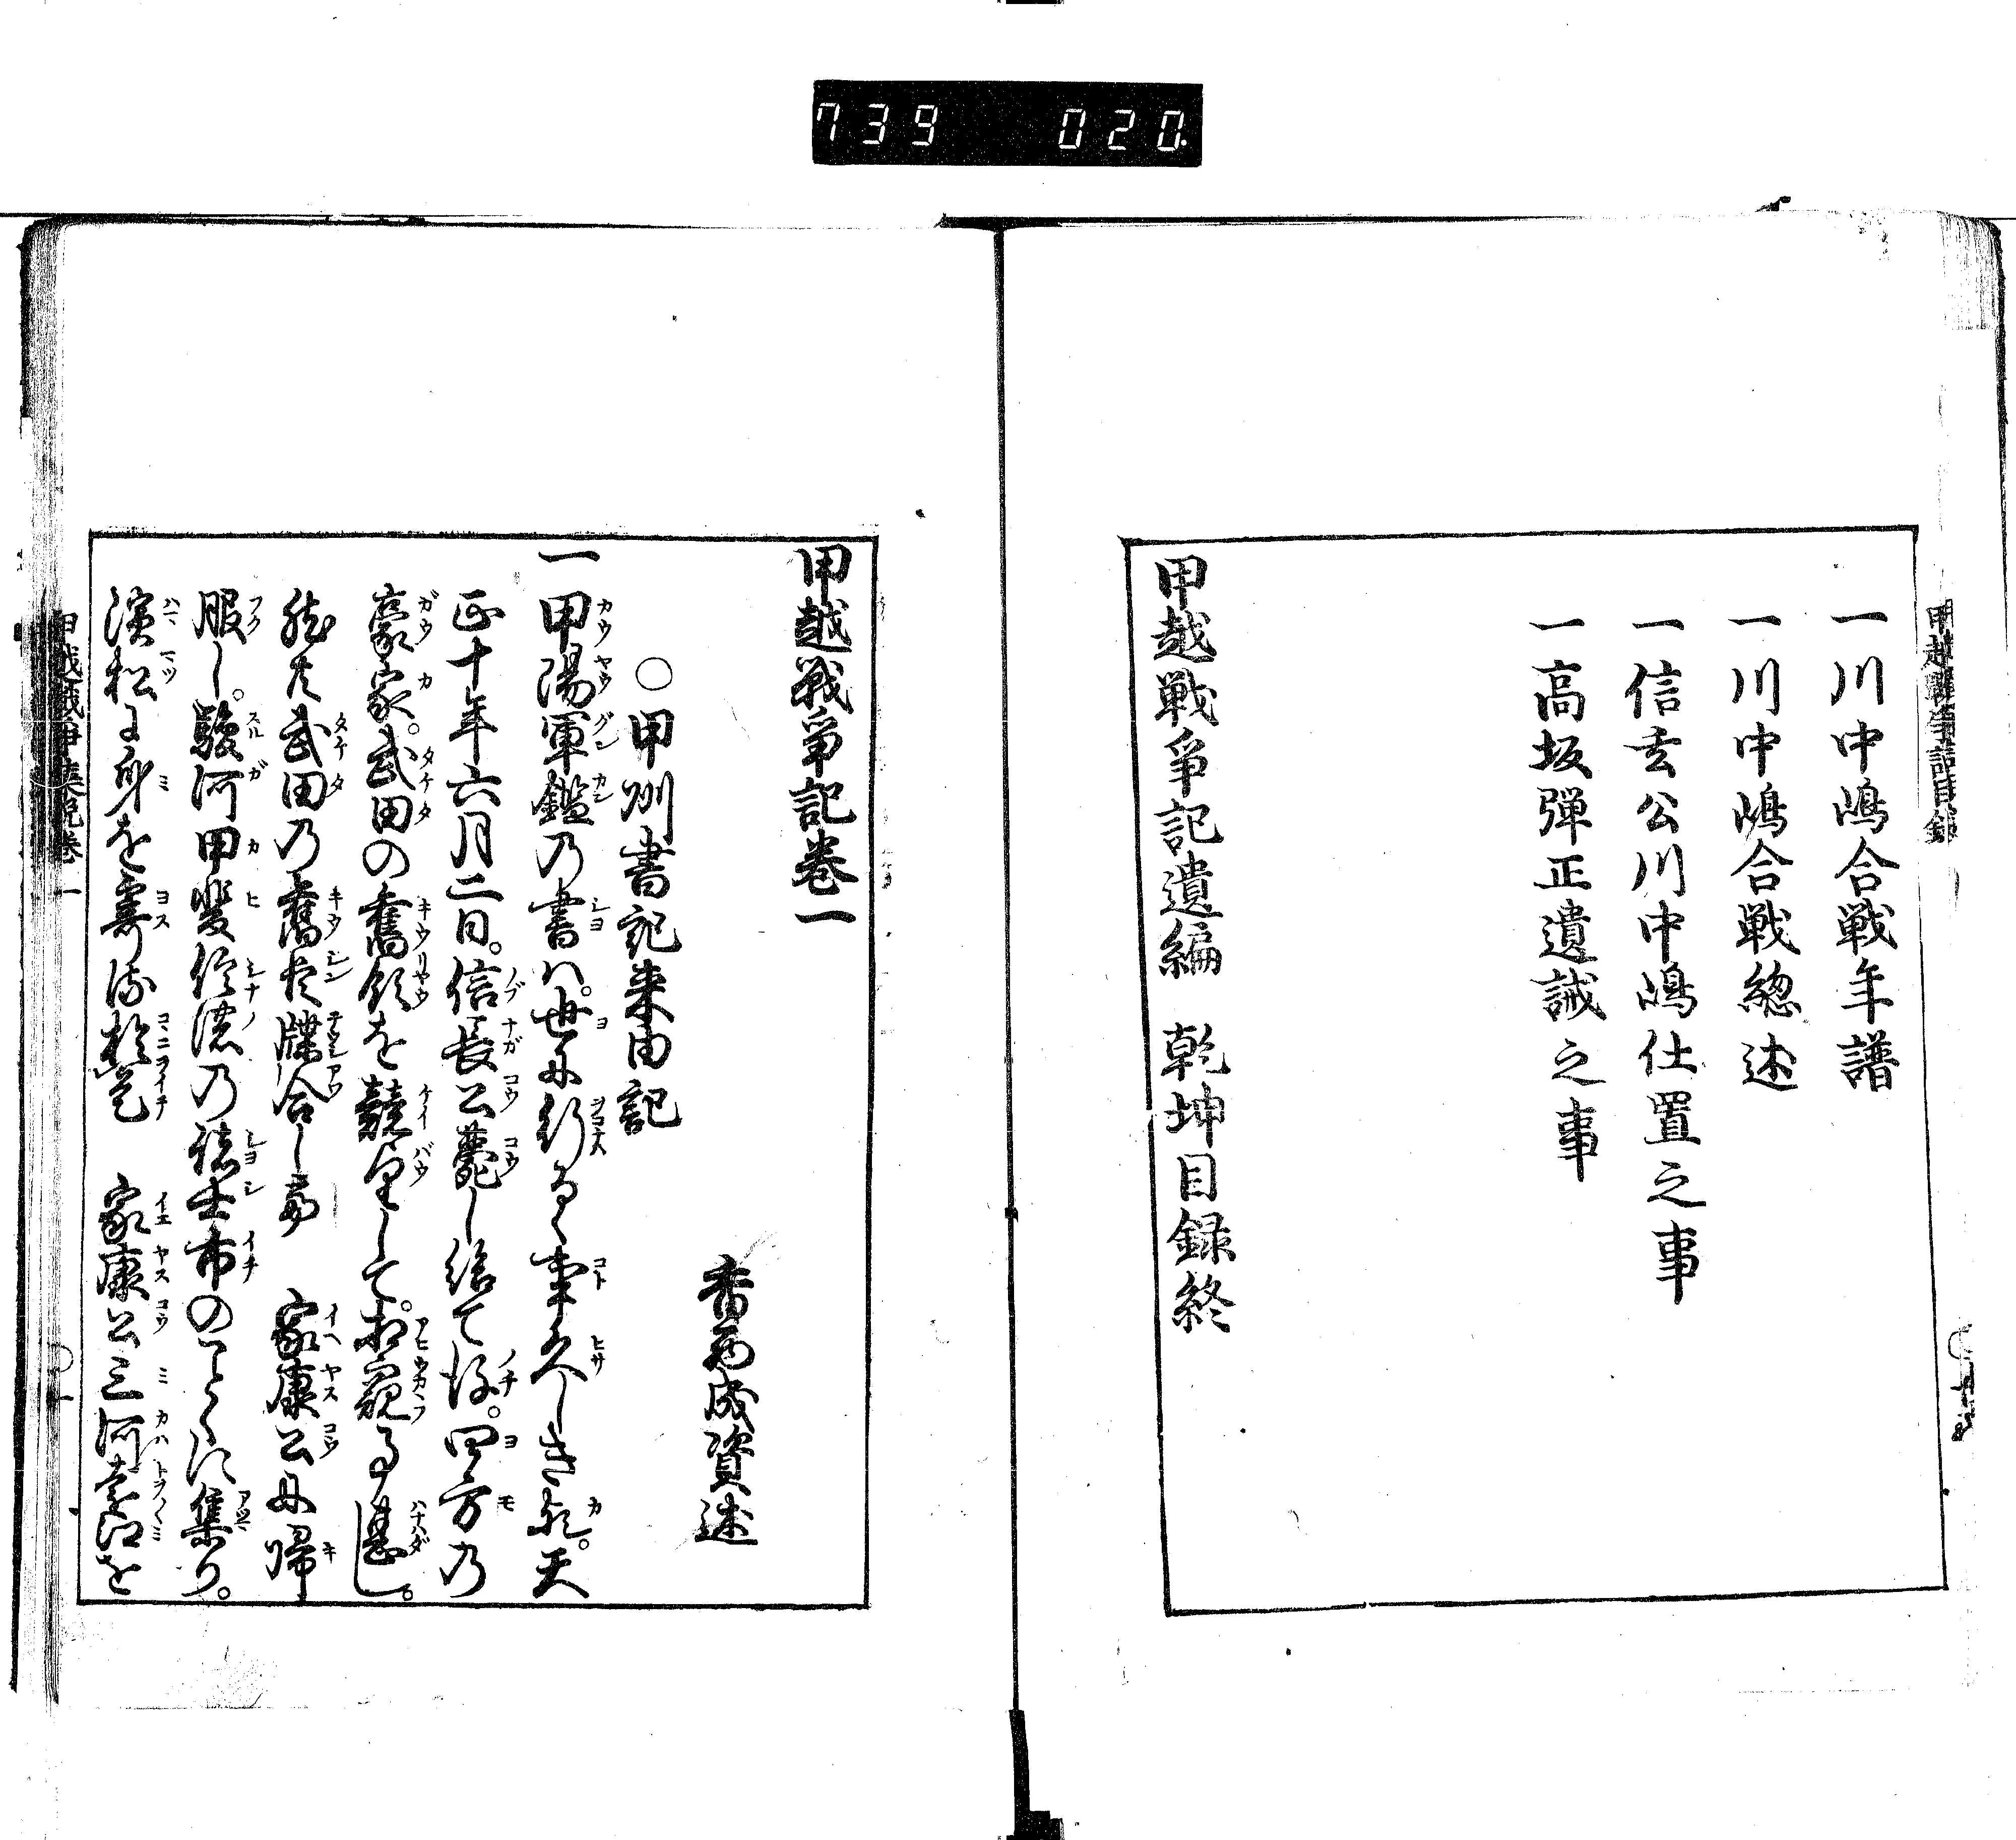 739 020
一川中嶋合戦年譜
一川中嶋合戦總述
一信玄公川中嶋仕置之事
一高坂弾正遺誡之事
甲越戦爭記遺編 乾坤目録終
甲越戦爭記巻一
香西成資述
○甲州書記来由記
一甲陽軍鑑乃書ハ。世に行るゝ事久しき歟。天
正十年六月二日。信長公薨し給て後。四方乃
豪家。武田の舊領を競望して。相窺る事甚し。
然共武田乃舊臣牒合し而 家康公に帰
服し。駿河甲斐信濃乃諸士市のことくに集り。
濱松に身を寄す於是 家康公三河遠江を